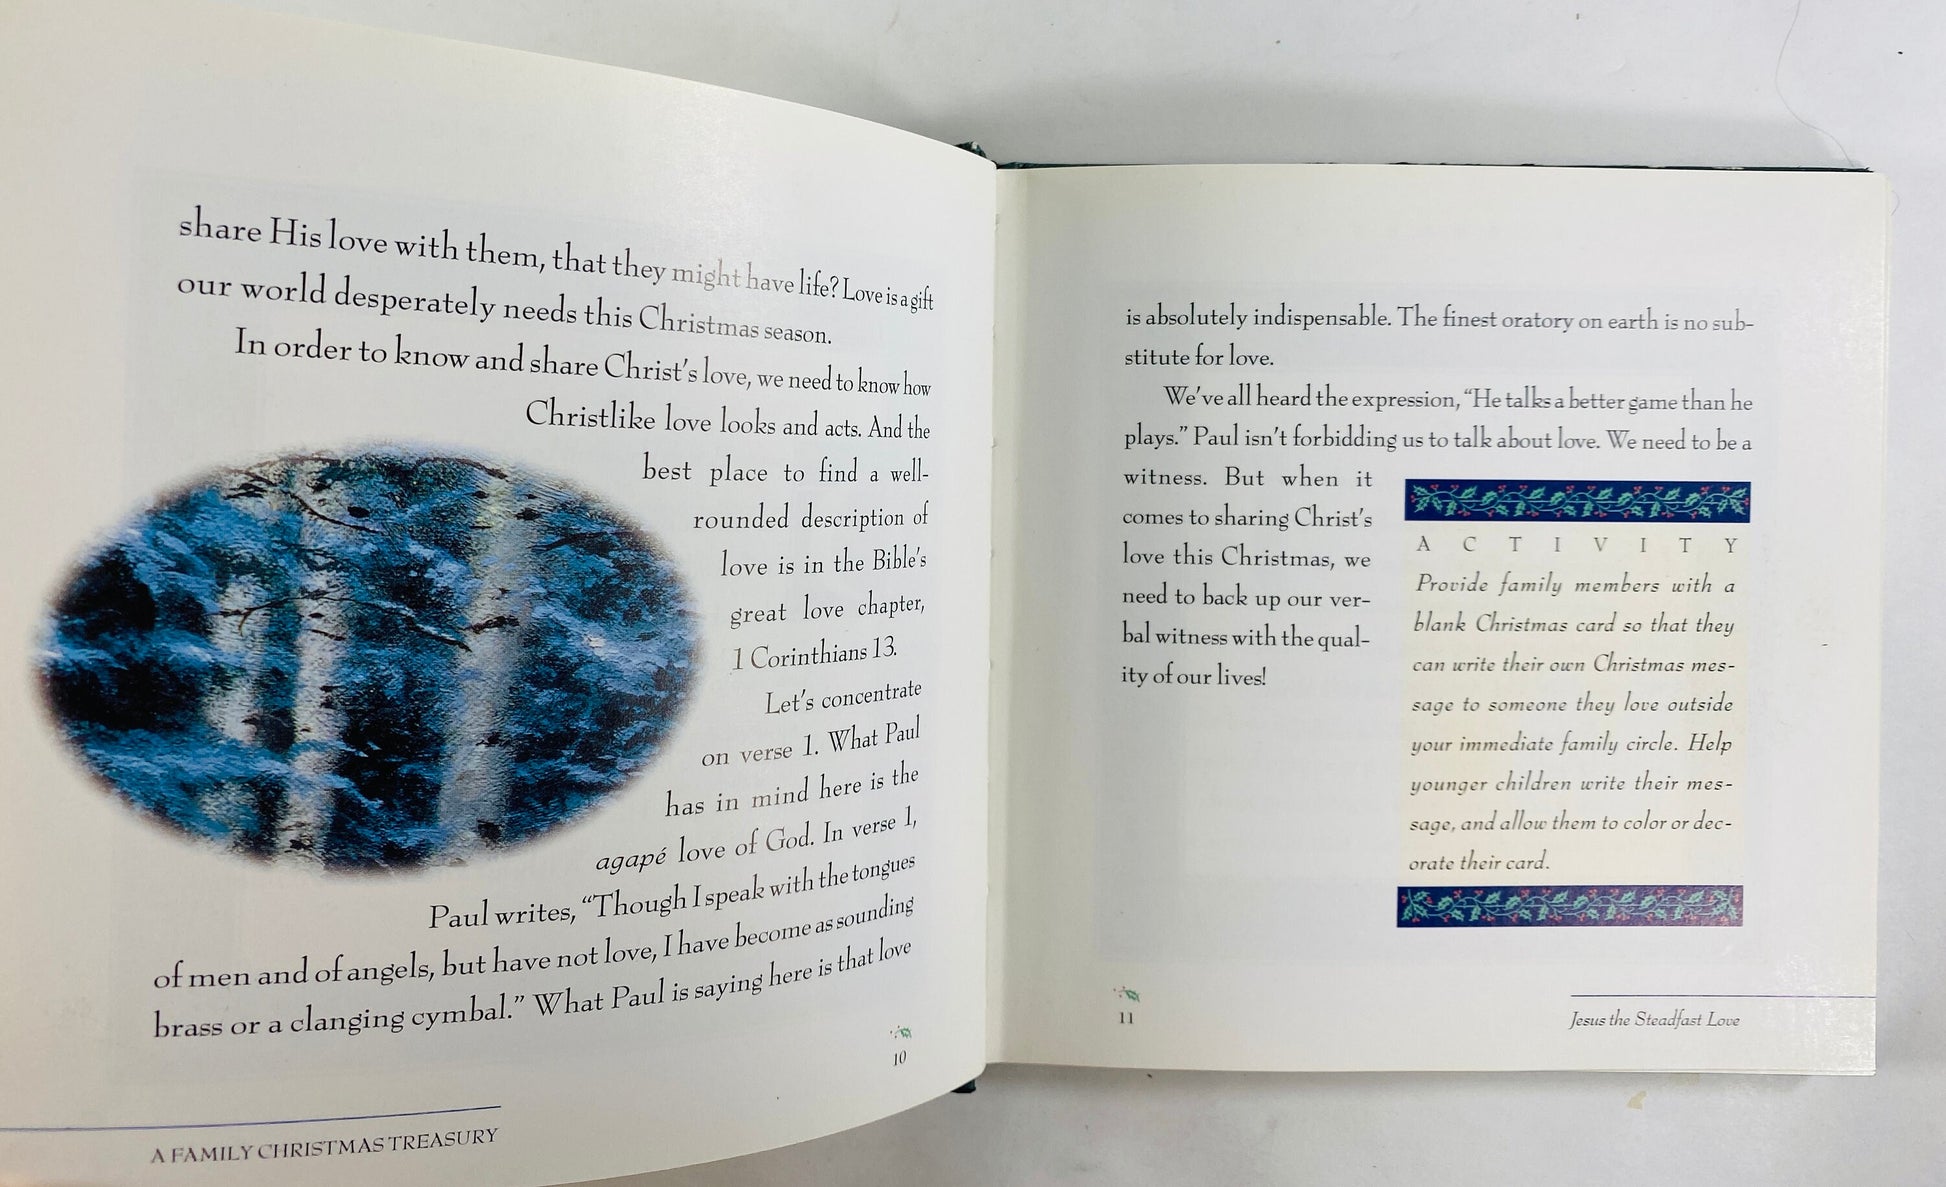 share His love with them, that they might have life? Love is a gift
our world desperately needs this Christmas season.
In order to know and share Christ's love, we need to know how
Christlike love looks and acts. And the
best place to find a well-
rounded description of
love is in the Bible's
great love chapter,
1 Corinthians 13.
Let's concentrate
on verse 1. What Paul
has in mind here is the
agapé love of God. In verse 1,
Paul writes, “Though I speak with the tongues
of men and of angels, but have not love, I have become as sounding
brass or a clanging cymbal.” What Paul is saying here is that love
10
A FAMILY CHRISTMAS TREASURY
is absolutely indispensable. The finest oratory on earth is no sub-
stitute for love.
We've all heard the expression, “He talks a better game than he
plays.” Paul isn't forbidding us to talk about love. We need to be a
witness. But when it
comes to sharing Christ's
love this Christmas, we
need to back up our ver-
bal witness with the qual-
ity of our lives!
ACTIVITY
Provide family members with a
blank Christmas card so that they
can write their own Christmas mes-
sage to someone they love outside
your immediate family circle. Help
younger children write their mes-
sage, and allow them to color or dec-
orate their card.
11
Jesus the Steadfast Love